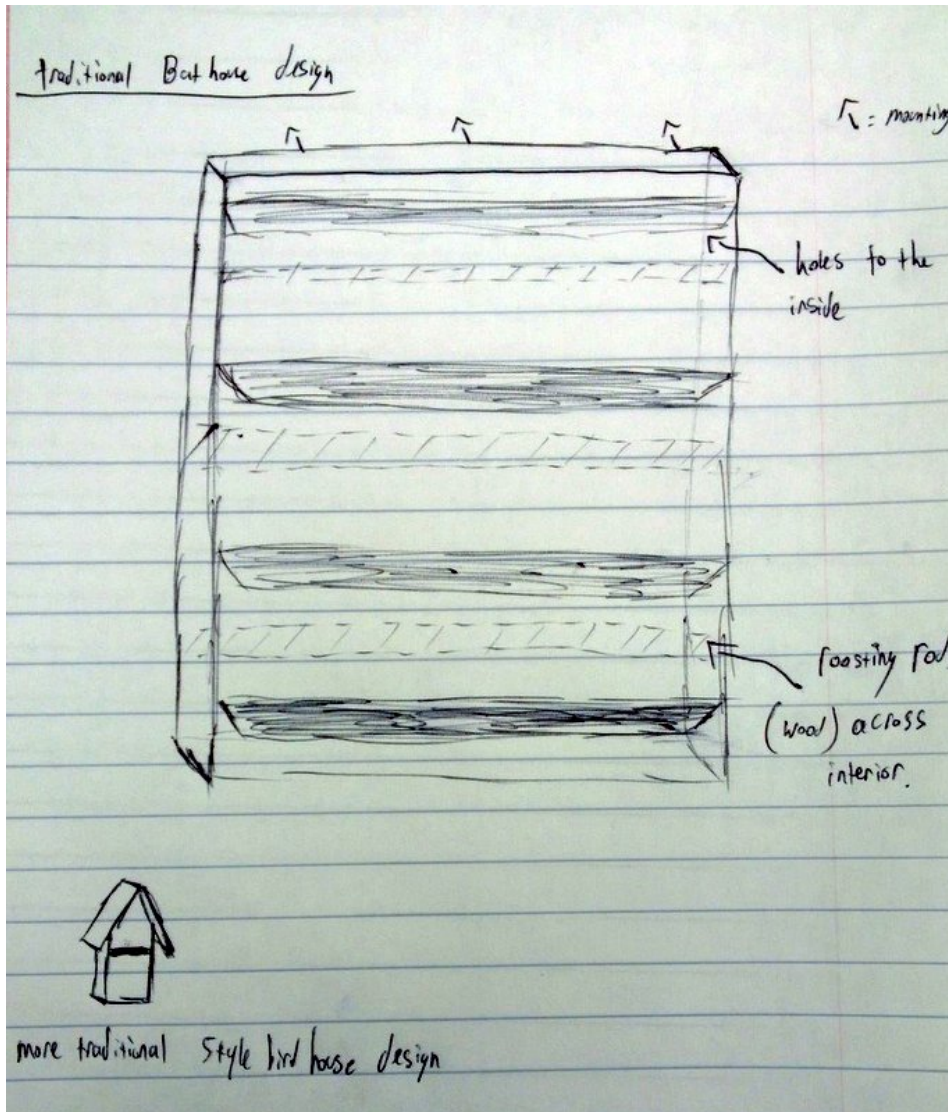 traditional Bat house design
= mounting
holes to the
inside
roosting rod
(wood) across
interior.
more traditional Style bird house design